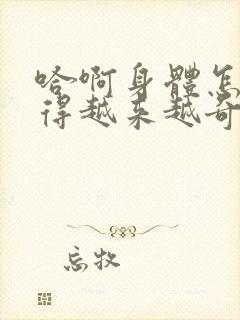 哈啊身體怎
得越来越奇
忘牧